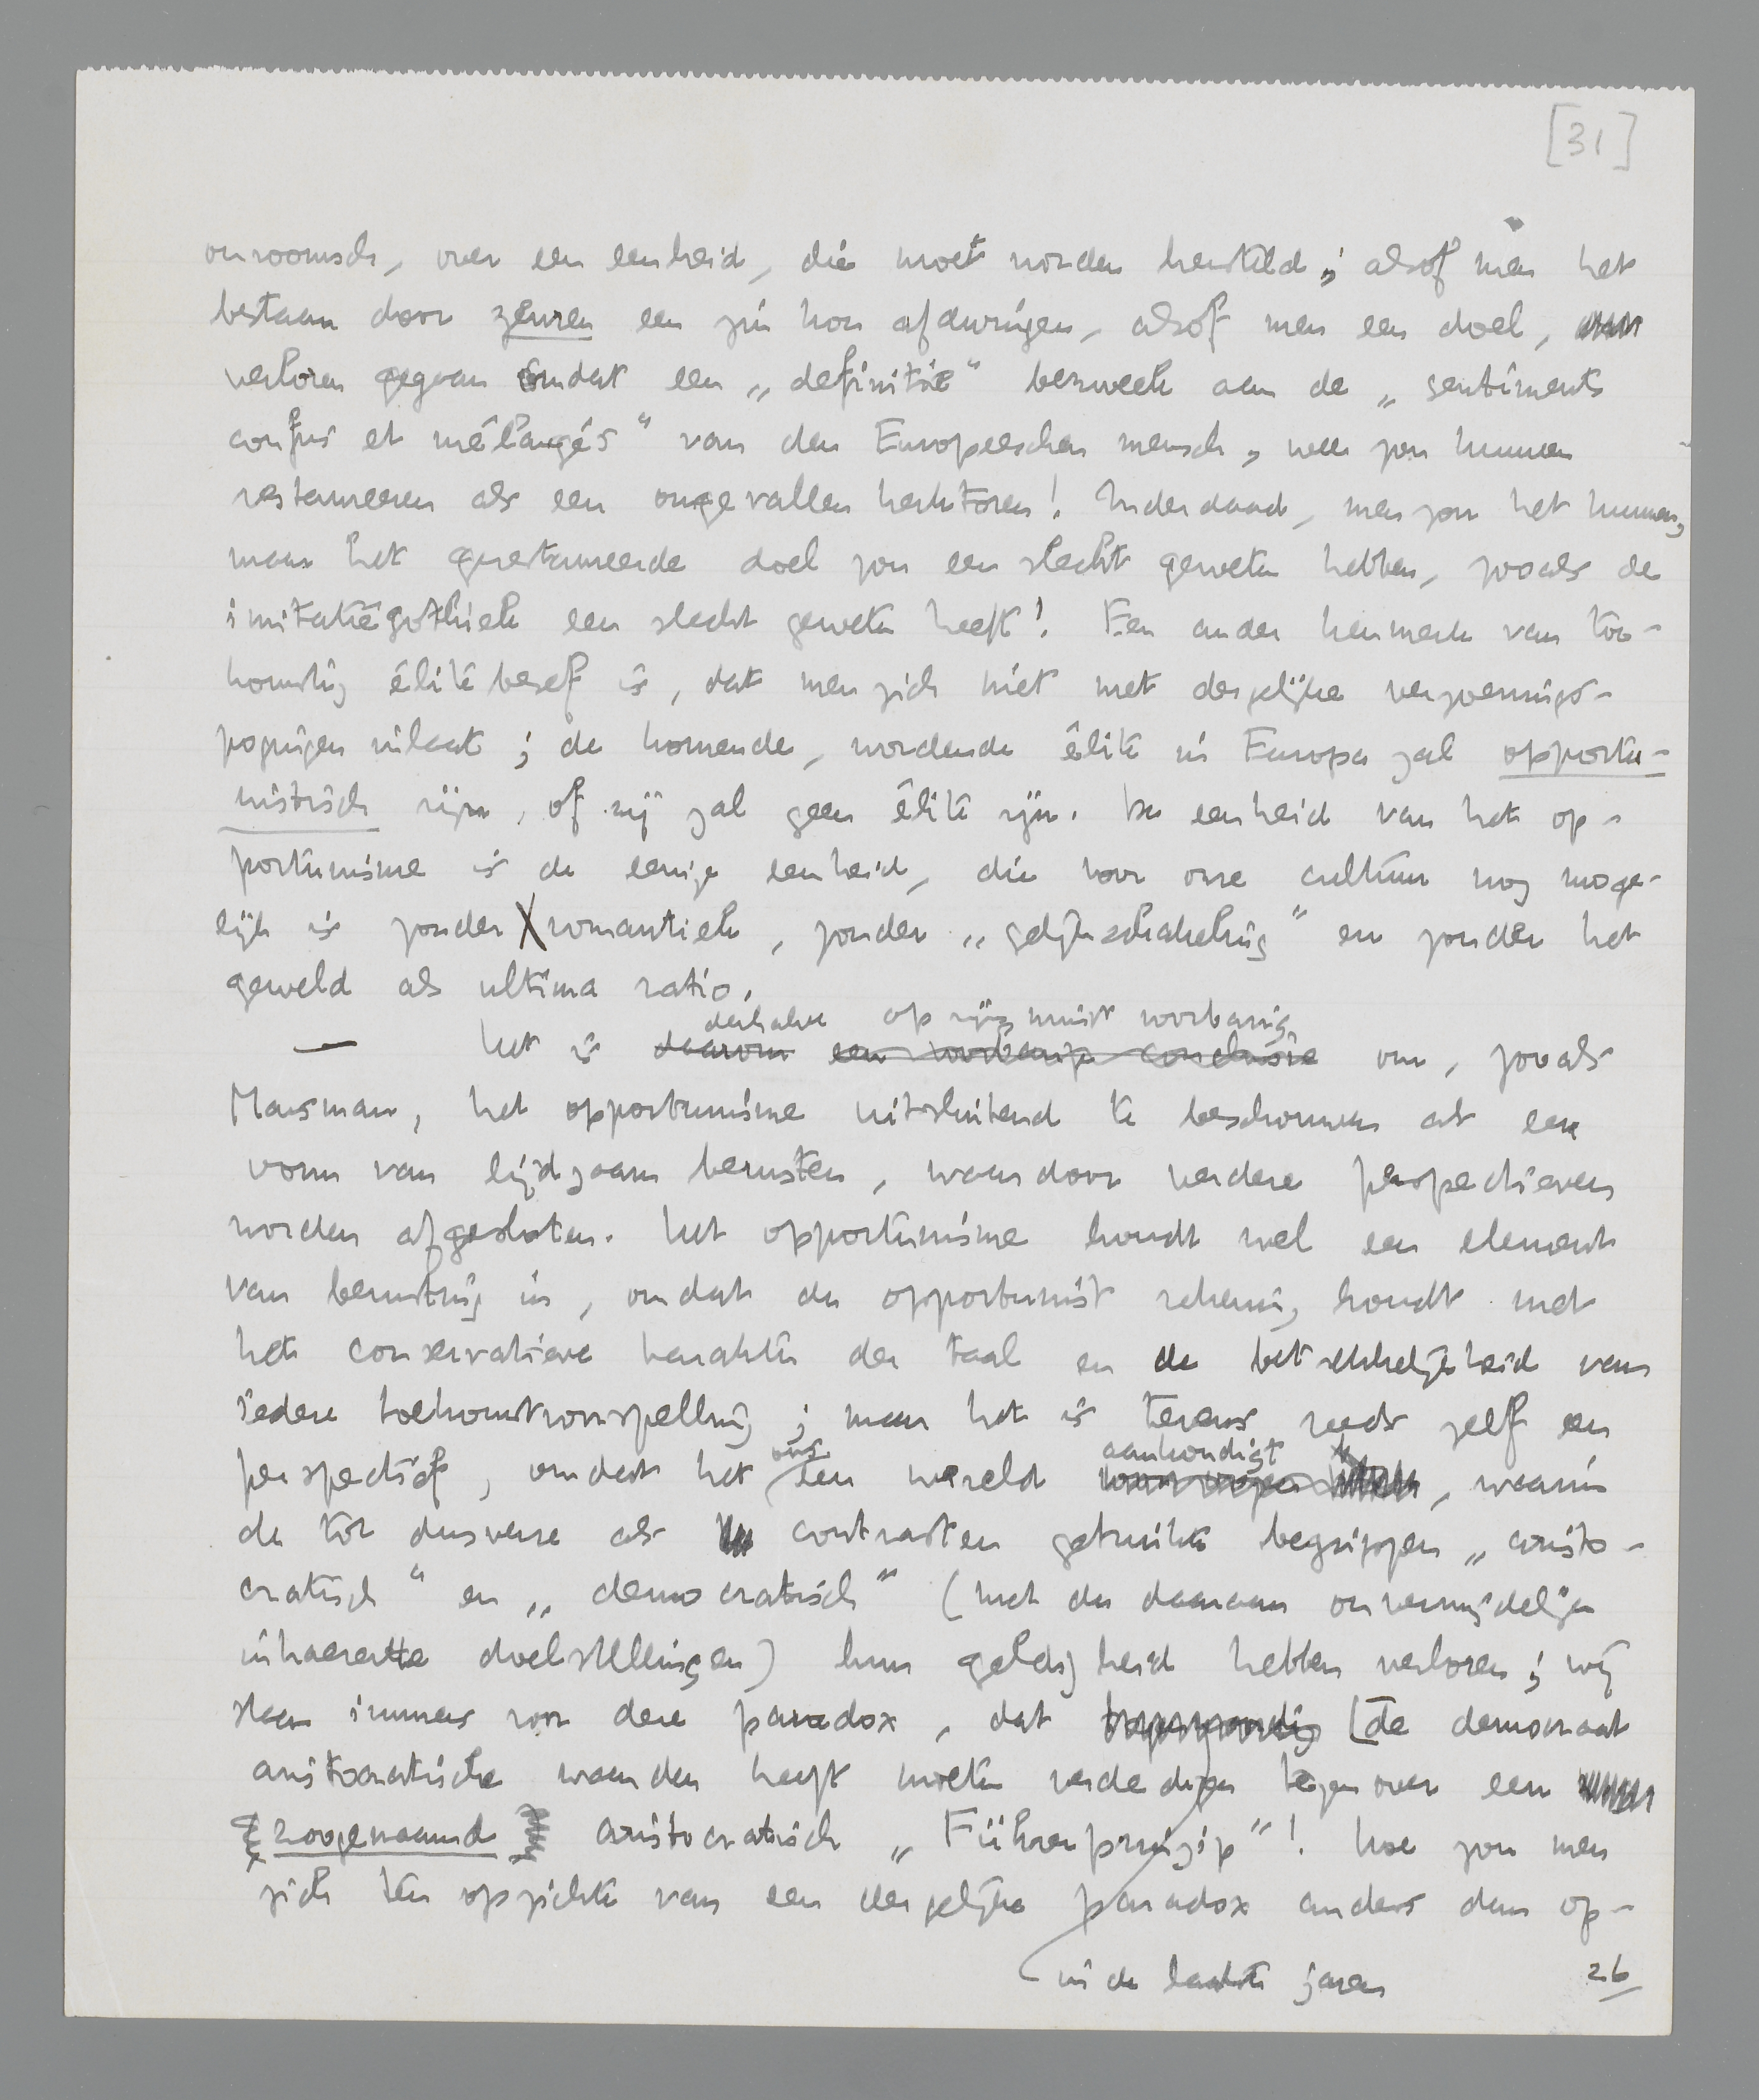 [31]
onroomsch, over een eenheid, die moet worden hersteld; alsof men het
bestaan door zeuren een zin kon afdwingen, alsof men een doel,
verloren gegaan omdat een „definitie" bezweek aan de „sentiments
confus et mélangés" van den Europeeschen mensch, weer zou kunnen
restaureeren als een omgevallen kerktoren! Inderdaad, men zou het kunnen,
maar het gerestaureerde doel zou een slecht geweten hebben, zooals de
imitatiegothiek een slecht geweten heeft! Een ander kenmerk van toe-
komstig élitebesef is, dat men zich niet met dergelijke verzoenings-
pogingen inlaat; de komende, wordende élite in Europa zal opportu-
nistisch zijn, of zij zal geen élite zijn. De eenheid van het op-
portunisme is de eenige eenheid, die voor onze cultuur nog moge-
lijk is zonder romantiek, zonder „gelijkschakeling" en zonder het
geweld als ultima ratio.
derhalve op zijn minst voorbarig
— Het is daarom een voorbarige conclusie om, zooals
Marsman, het opportunisme uitsluitend te beschouwen als een
vorm van lijdzaam berusten, waardoor verdere perspectieven
worden afgesloten. Het opportunisme houdt wel een element
van berusting in, omdat de opportunist rekening houdt met
het conservatieve karakter der taal en de betrekkelijkheid van
iedere toekomstvoorspelling; maar het is tevens reeds zelf een
ons aankondigt
perspectief, omdat het een wereld , waarin
de tot dusverre als contrasten gebruikte begrippen „aristo-
cratisch" en „democratisch" (met de daaraan onvermijdelijk
inhaerente doelstellingen) hun geldigheid hebben verloren; wij
staan immers voor deze paradox, dat de democraat
aristocratische waarden heeft moeten verdedigen tegenover een
zoogenaamd aristocratisch „Führerprinzip"! Hoe zou men
zich ten opzichte van een dergelijke paradox anders dan op-
in de laatste jaren
26